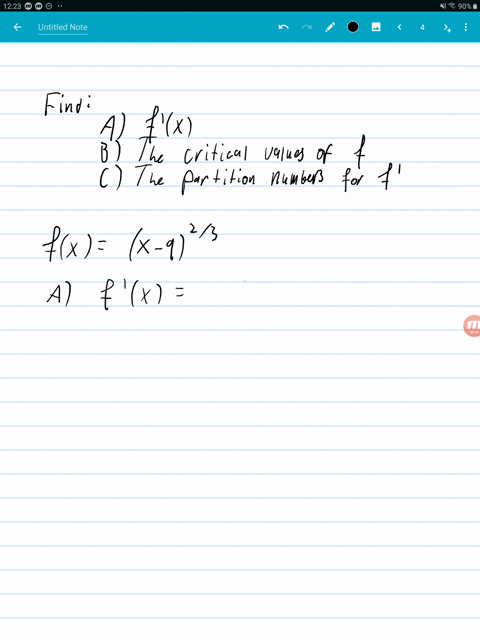 12:23 90%
Untitled Note 4
Find:
A) f'(x)
B) The critical values of f
C) The partition numbers for f'
f(x) = (x-9)^2/3
A) f'(x) =